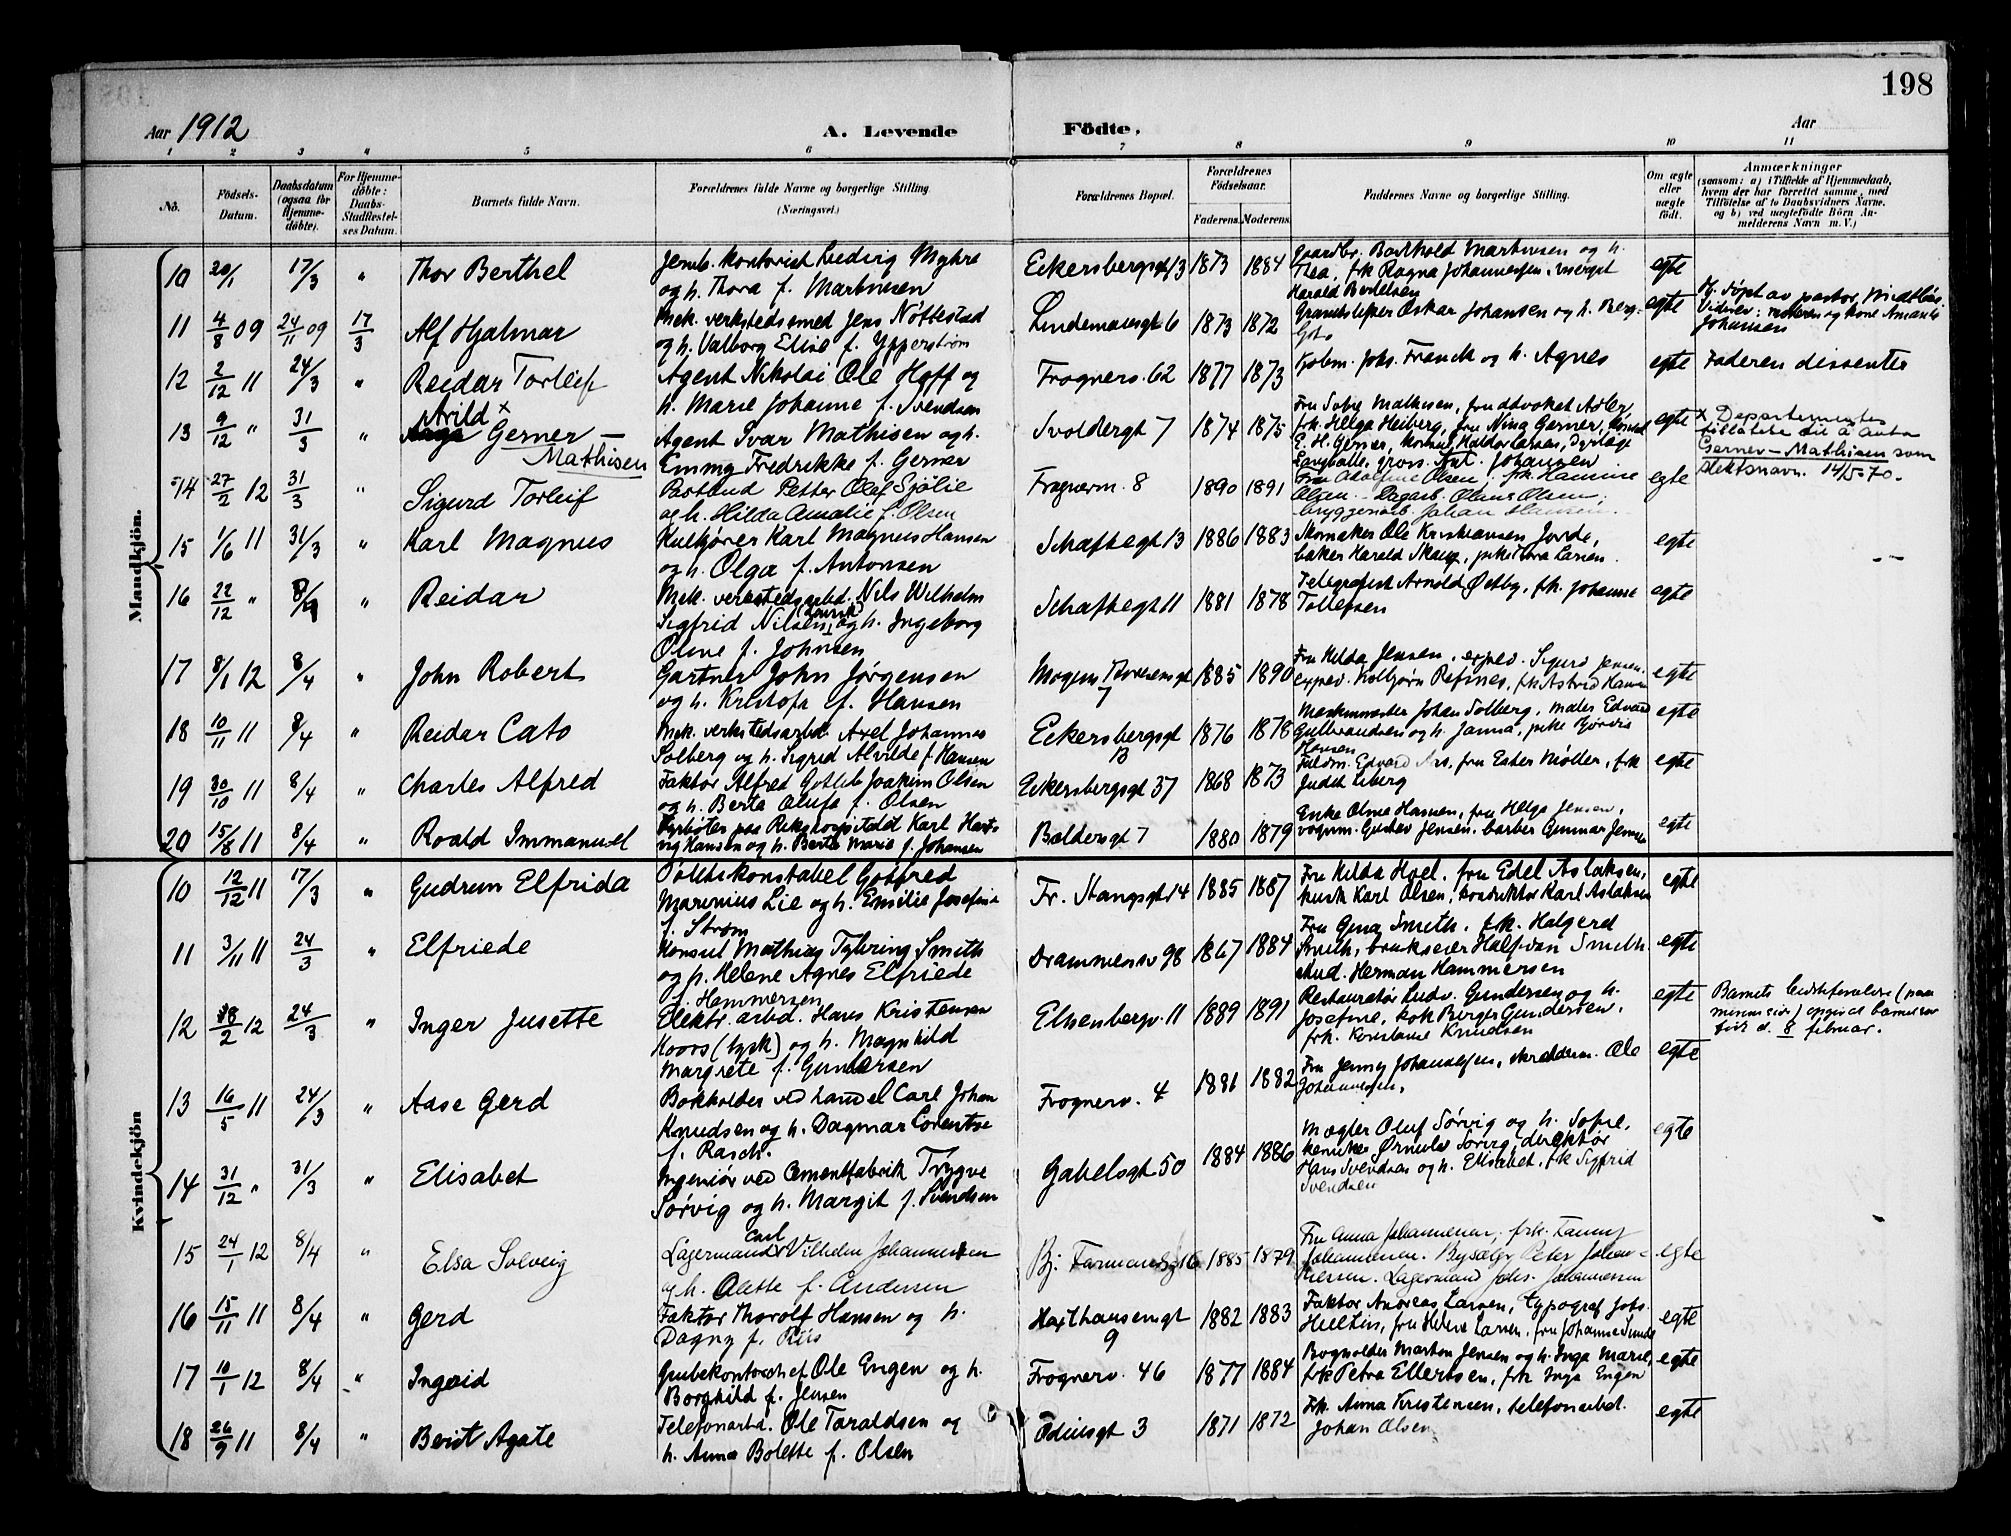 198
Aar 1912
A. Levende Födte.
Aar
1 2 3 4 5 6 7 8 9 10 11
No.
Födsels-Datum.
Daabsdatum (ogsaa for Hjemmedöbte).
For Hjemmedöbte: Daabs-Stadfæstelses Datum.
Barnets fulde Navn.
Forældrenes fulde Navne og borgerlige Stilling (Næringsvei.)
Forældrenes Bopæl.
Forældrenes Födselsaar.
Faderens. Moderens.
Faddernes Navne og borgerlige Stilling.
Om ægte eller uægte födt.
Anmærkninger
(saasom: a) i Tilfælde af Hjemmedaab, hvem der har forrettet samme, med Tilföielse af to Daabsvidners Navne. og b) ved uægtefödte Börn Anmelderens Navn m. V.)
Mandkjön.
10 20/1 17/3 " Thor Berthel
Jernb. kontorist Ludvig Myhre
og h. Thora f. Martinsen
Eckersbergsgt 13 1873 1884
Gaardbr. Barthold Martinsen og h.
Thea, frk Ragna Johannessen,
Harald Bertelsen
egte
11 4/8 09 24/11 09 17/3 Alf Hjalmar
Mek. verkstedssmed Jens Nøttestad
og h. Valborg Elise f. Ypperstrøm
Lindemansgt 6 1873 1872
Oskar Johansen og h. Berg-
egte
Hj. døpt av pastor
Vidner: moderen og kone Amanda
Johansen
12 2/12 11 24/3 " Reidar Torleif
Agent Nikolai Ole Hoff og
h. Marie Johanne f. Svendsen
Frognerv. 62 1877 1873
Kjøbm. Johs. Franck og h. Agnes
egte
Faderen dissenter
13 9/12 " 31/3 " Arild x Gerner — Mathisen
Agent Ivar Mathisen og h.
Emmy Fredrikke f. Gerner
Svoldergt 7 1874 1875
Fru Sofie Mathisen, fru advokat Adler,
frk. Helga Heiberg, fru Nina Gerner,
E. H. Gerner, Haldor Larsen, Dyrlæge
Langballe, gros. Ant. Johansen
egte
x Departementets
tillatelse til å anta
Gerner-Mathisen som
slektsnavn. 14/5-70.
14 27/2 12 31/3 " Sigurd Torleif
Petter Olaf Sjølie
og h. Hilda Amalie f. Olsen
Frognerm. 8 1890 1891
Fru Adolfine Olsen, frk. Hannine
Olsen. Dagarb. Oluns Olsen,
bryggeriarb. Johan Hansen.
egte
15 1/6 11 31/3 " Karl Magnus
Kulkjører Karl Magnus Hansen
og h. Olga f. Antonsen
Schafteløgt 13 1886 1883
Skomaker Ole Kristiansen Jorde,
baker Harald Skaug, pike Thora Larsen.
egte
16 22/12 " 8/4 " Reidar
Mek. verkstedsarbd. Nils Wilhelm
Sigfrid Nilsen (svensk) og h. Ingeborg
Oline f. Johnsen
11 1881 1878
Telegrafist Arnold Østby, frk. Johanne
Tollefsen
egte
17 8/1 12 8/4 " John Robert
Gartner John Jørgensen
og h. Kristofa f. Hansen
Mogens Thorsensgt 7 1885 1890
Fru Hilda Jensen, exped. Sigurd Jensen
exped. Kolbjørn Refsnes, frk Astrid Hansen
egte
18 10/11 11 8/4 " Reidar Cato
Mek. verkstedsarbd. Axel Johannes
Solberg og h. Sigrid Alvilde f. Hansen
Eckersbergsgt 13 1876 1878
Maskinmester Johan Solberg, maler Edvard
Gulbrandsen og h. Janna, pike Hjørdis
Hansen
egte
19 30/10 11 8/4 " Charles Alfred
Faktor Alfred Gotlieb Joakim Olsen
og h. Berta Olufa f. Olsen
Eckersbergsgt 37 1868 1873
Fuldm. Edvard Aas, fru Ester Møller, frk
Judith Liberg
egte
20 15/8 11 8/4 " Roald Immanuel
Fyrbøter paa Rikshospitalet Karl Hart-
vig Hansen og h. Berta Marie f. Johansen
Baldersgt 7 1880 1879
Enke Oline Hansen, fru Helga Jensen,
vognm. Gustav Jensen, barber Gunnar Jensen
egte
Kvindekjön
10 12/12 11 17/3 " Gudrun Elfrida
Politikonstabel Gotfred
Marinius Lie og h. Emilie Josefine
f. Strøm
Fr. Stangsgt 14 1885 1887
Fru Hilda Hoel, fru Edel Aslaksen,
kusk Karl Olsen, konduktør Karl Aslaksen
egte
11 3/11 11 24/3 " Elfriede
Konsul Mathias Tyhring Smith
og h. Helene Agnes Elfriede
f. Hammersen
Drammensv 98 1867 1884
Fru Gina Smith, frk. Halgerd
Smith, brukseier Halfdan Smith
stud. Herman Hammersen
egte
12 18/2 12 24/3 " Inger Jusette
Elektr. arbd. Hans Kristensen
Koors (tysk) og h. Magnhild
Margrete f. Gundersen
Elisenbergv. 11 1889 1891
Restauratør Ludv. Gundersen og h.
Josefine, kok Birger Gundersen,
frk. Konstanse Knudsen
egte
Barnets bedsteforældre
opgir at barnet er
født d. 8 februar.
13 16/5 11 24/3 " Aase Gerd
Bokholder ved handel Carl Johan
Knudsen og h. Dagmar Lorentse
f. Rasch.
Frognerv. 4 1881 1882
Fru Jenny Johannesen, skrædderm. Ole
Johannesen.
egte
14 31/12 " 31/3 " Elisabet
Ingeniør ved Cementfabrik Trygve
Sørvig og h. Margit f. Svendsen
Gabelsgt 50 1884 1886
Mægler Oluf Sørvig og h. Sofie,
kemiker Ørnulf Sørvig, direktør
Hans Svendsen og h. Elisabet, frk Sigfrid
Svendsen
egte
15 24/1 12 8/4 " Elsa Solveig
Lagermand Carl Vilhelm Johannessen
og h. Olette f. Andersen
Bj. Farmandsg 16 1885 1879
Fru Anna Johannessen, frk. Fanny
Johannessen. Peter Johan-
nessen. Lagermand Johs. Johannessen
egte
16 15/11 11 8/4 " Gerd
Faktor Thorolf Hansen og h.
Dagny f. Riis
Haxthausensgt 9 1882 1883
Faktor Andreas Larsen, typograf Johs.
Hultin, fru Helene Larsen, fru Johanne Sunde
egte
17 10/1 12 8/4 " Ingrid
Grubekontorchef Ole Engen og h.
Borghild f. Jensen
Frognerv. 46 1877 1884
Bogholder Marton Jensen og h. Inga Marie,
frk Petra Ellertsen, frk Inga Engen
egte
18 26/9 11 8/4 " Berit Agate
Telefonarbd. Ole Taraldsen og
h. Anna Bolette f. Olsen
Odinsgt 3 1871 1872
Frk. Anna Kristensen, telefonarbd.
Johan Olsen
egte